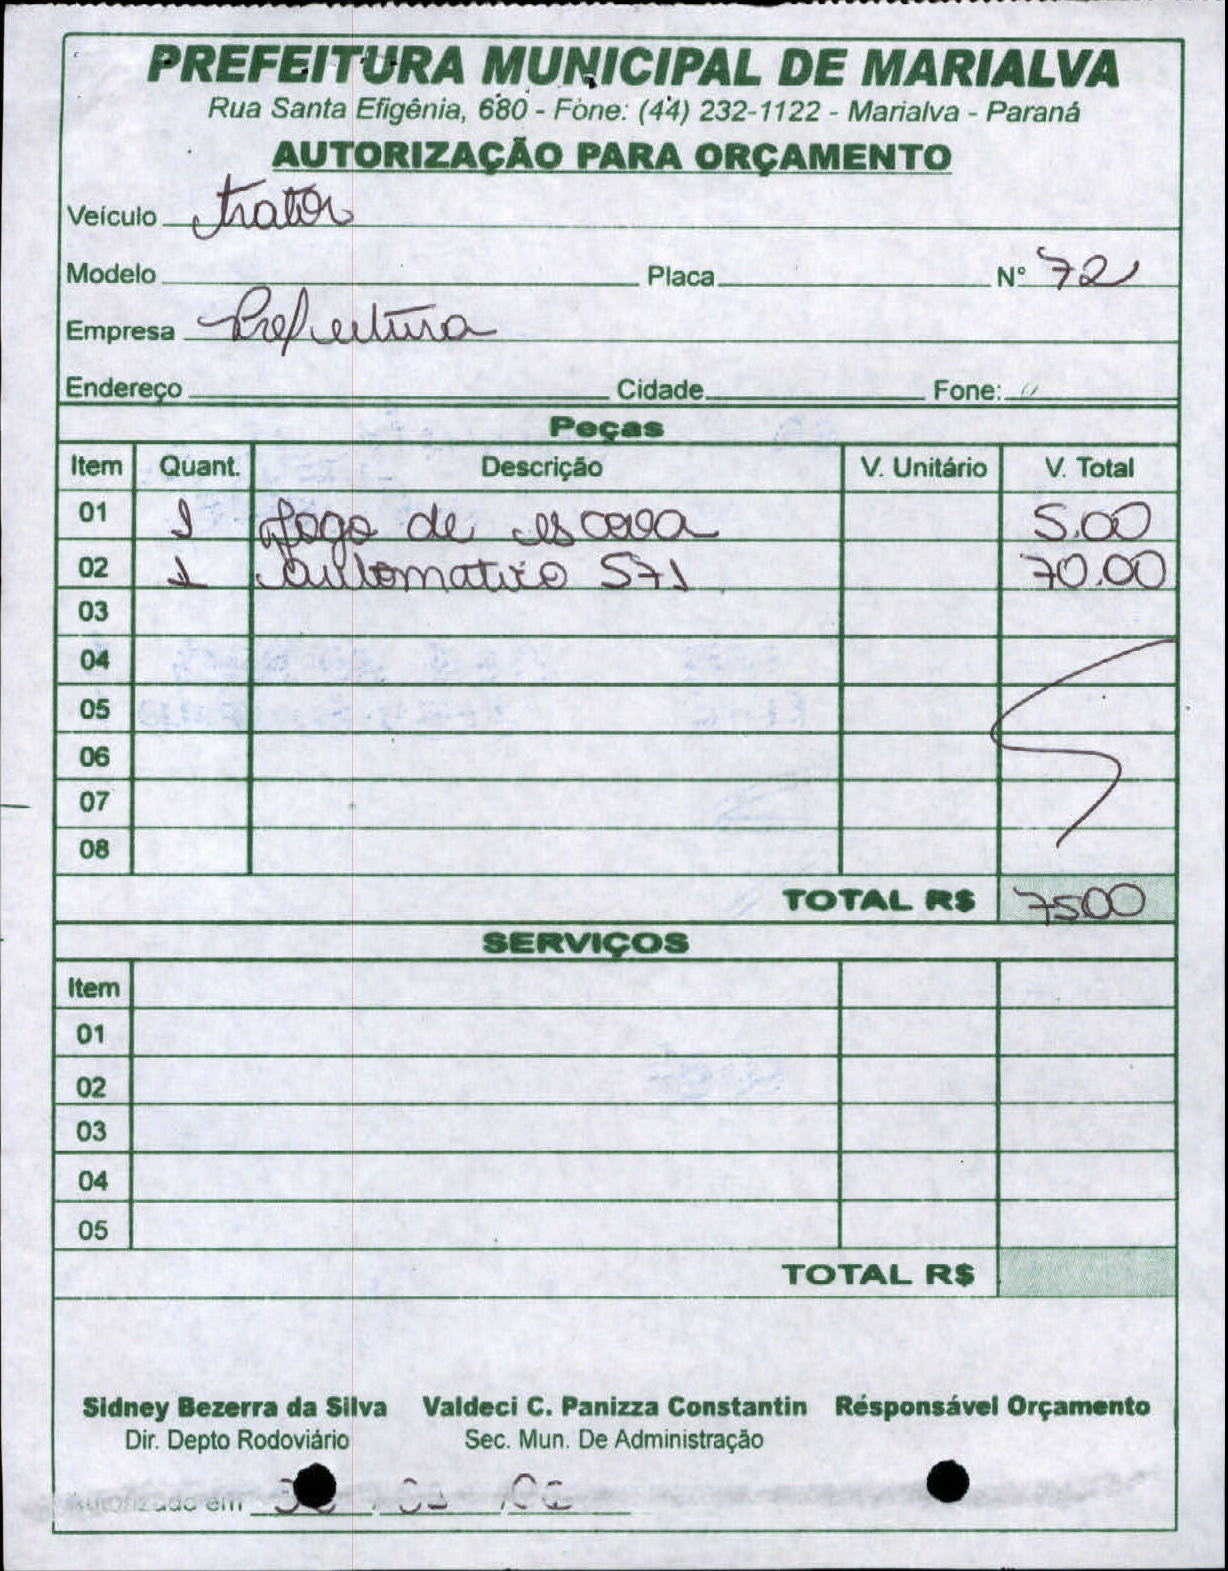 PREFEITURA MUNICIPAL DE MARIALVA
Rua Santa Efigênia, 680 - Fone: (44) 232-1122 - Marialva - Paraná
AUTORIZAÇÃO PARA ORÇAMENTO
Veículo trator
Modelo Placa N° 72
Empresa Prefeitura
Endereço Cidade Fone:
Peças
Item Quant. Descrição V. Unitário V. Total
01 1 Jogo de escova 5.00
02 1 automatico 571 70.00
03
04
05
06
07
08
TOTAL R$ 7500
SERVIÇOS
Item
01
02
03
04
05
TOTAL R$
Sidney Bezerra da Silva Valdeci C. Panizza Constantin Résponsável Orçamento
Dir. Depto Rodoviário Sec. Mun. De Administração
Autorizado em